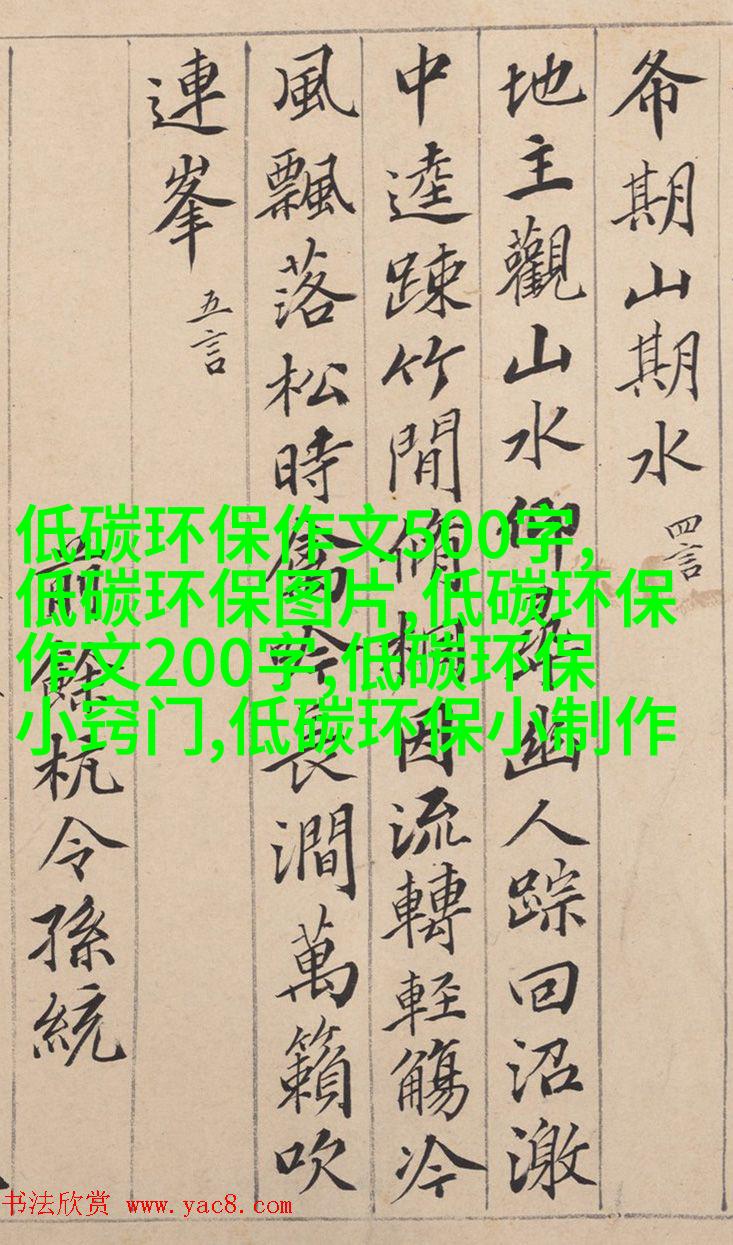 希期山期水 四言
地主觀山水仰尋幽人踪回沼激
中逵踈竹間脩桐因流轉輕觴冷
風飄落松時禽吟長澗萬籟吹
連峯 五言
前餘杭令孫統
低碳环保作文500字,
低碳环保图片,低碳环保
作文200字,低碳环保
小窍门,低碳环保小制作
书法欣赏 www.yac8.com